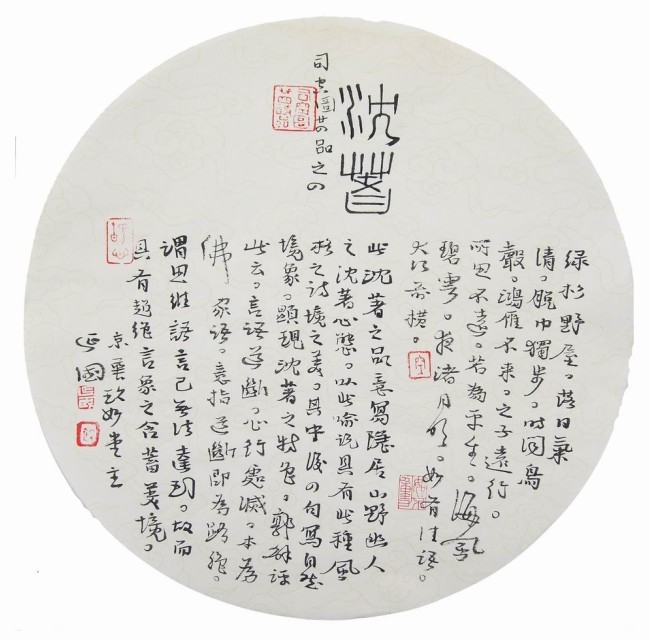 沈著
司空啚廿品之の
绿杉野屋。落日氣
清。脱巾獨步。时闻鳥
聲。鴻雁不来。之子遠行。
所思不遠。若為平生。海風
碧雲。夜渚月明。如有佳语。
大河前横。
此沈著之品意寫隱居山野幽人
之沈著心態。以此喻说具有此種風
格之詩境之美。其中後の句寫自然
境象。顯現沈著之特色。郭解评
此云。言語道斷。心行處滅。本為
佛家語。意指道斷即為路絶。
謂思维語言已無法達到。故而
具有超絶言象之含蓄美境。
京華玖妙堂主
延國